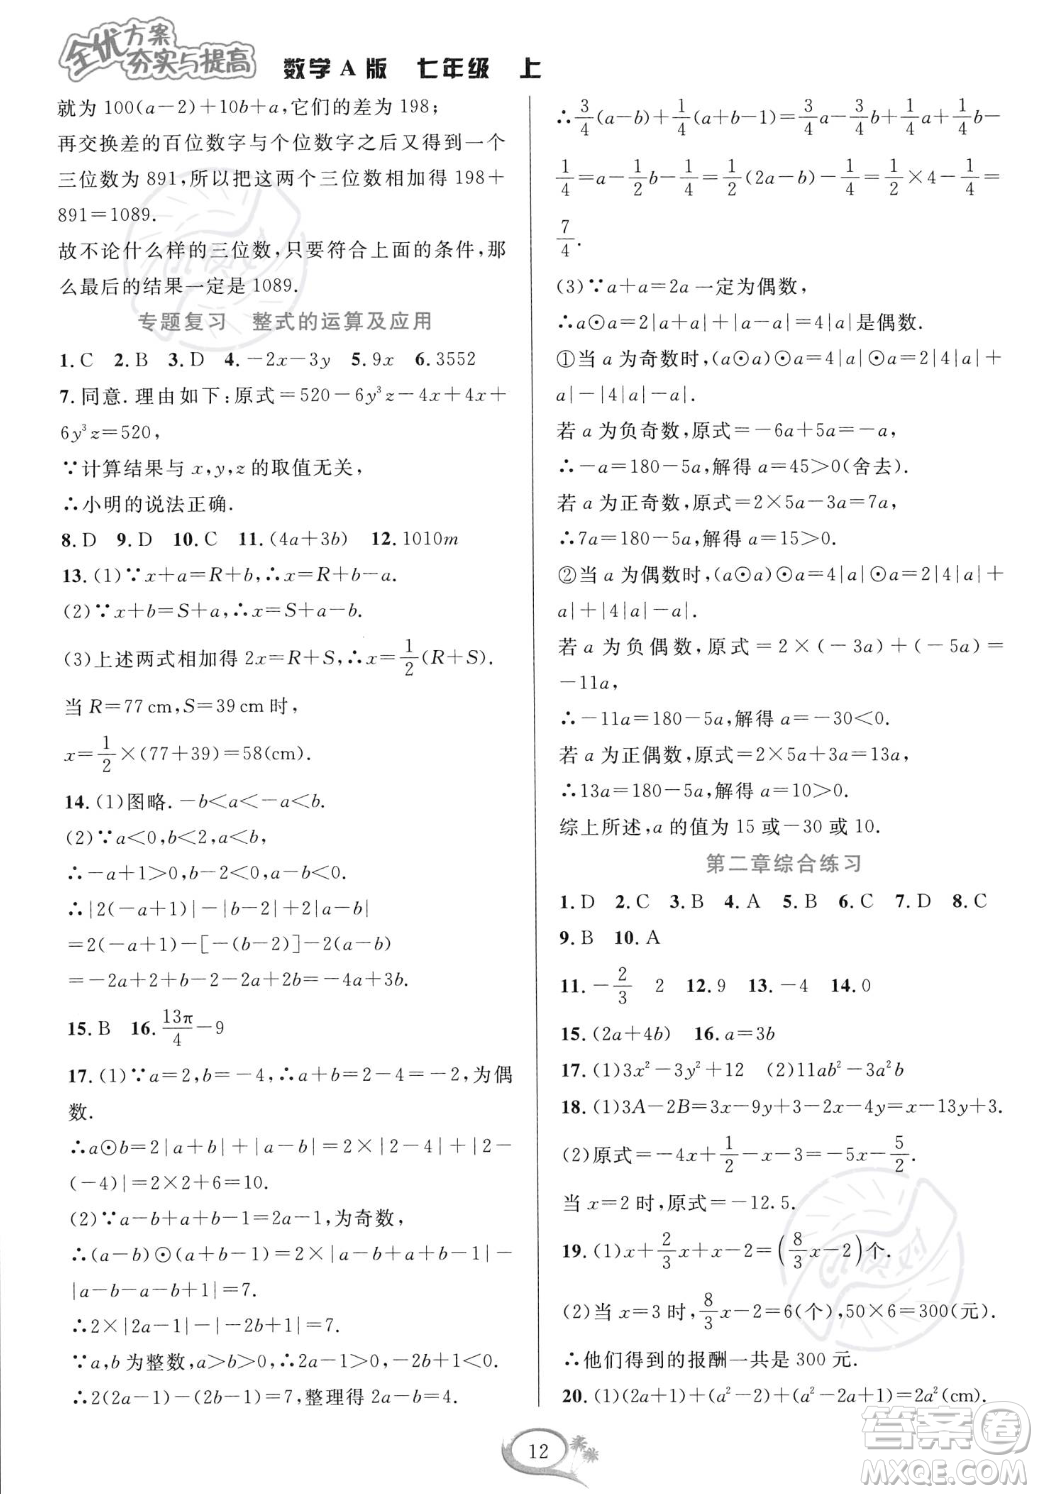 全优方案
夯实与提高
数学A版 七年级 上
就为100(a-2)+10b+a,它们的差为198;
再交换差的百位数字与个位数字之后又得到一个
三位数为891,所以把这两个三位数相加得198+
891=1089.
故不论什么样的三位数,只要符合上面的条件,那
么最后的结果一定是1089.
专题复习 整式的运算及应用
1.C 2.B 3.D 4.-2x-3y 5.9x 6.3552
7.同意.理由如下:原式=520-6y³z-4x+4x+
6y³z=520,
∵计算结果与x,y,z的取值无关,
∴小明的说法正确.
8.D 9.D 10.C 11.(4a+3b) 12.1010m
13.(1)∵x+a=R+b,∴x=R+b-a.
(2)∵x+b=S+a,∴x=S+a-b.
(3)上述两式相加得2x=R+S,∴x=1/2(R+S).
当R=77 cm,S=39 cm时,
x=1/2×(77+39)=58(cm).
14.(1)图略.-b<a<-a<b.
(2)∵a<0,b<2,a<b,
∴-a+1>0,b-2<0,a-b<0,
∴|2(-a+1)|-|b-2|-2|a-b|
=2(-a+1)-[-(b-2)]-2(b-a)
=-2a+2+b-2-2b+2a=-b
15.B 16.13π/4-9
17.(1)∵a=2,b=-4,∴a+b=-2,为偶
数.
∴a⊙b=2|a+b|+|a-b|=2×|2-4|+|2-
(-4)|=2×2+6=10.
(2)∵a-b+a+b-1=2a-1,为奇数,
∴(a-b)⊙(a+b-1)=2×|a-b+a+b-1|-
|a-b-a-b+1|=7.
∴2×|2a-1|-|-2b+1|=7.
∵a,b为整数,a>b>0,
∴2(2a-1)-(2b-1)=7,整理得2a-b=4.
∴3/4(a-b)+1/4(a+b-1)=3/4a-3/4b+1/4a+1/4b-
1/4=a-1/2b-1/4=1/2(2a-b)-1/4=1/2×4-1/4=
7/4.
(3)∵a+a=2a一定为偶数,
∴a⊙a=2|a+a|+|a-a|=4|a|是偶数.
①当a为奇数时,(a⊙a)⊙a=2|4|a|+
a|-|4|a|-a|.
若a为负奇数,原式=-6a+5a=-a,
∴-a=180-5a,解得a=45>0(舍去).
若a为正奇数,原式=2×5a-3a=7a,
∴7a=180-5a,解得a=15>0.
②当a为偶数时,(a⊙a)⊙a=2|4|a|+
a|+|4|a|-a|.
若a为负偶数,原式=2×(-3a)+(-5a)=
-11a,
∴-11a=180-5a,解得a=-30<0.
若a为正偶数,原式=2×5a+3a=13a,
∴13a=180-5a,解得a=10>0.
综上所述,a的值为15或-30或10.
第二章综合练习
1.D 2.C 3.B 4.A 5.B 6.C 7.D 8.C
9.B 10.A
11.-2/3 2 12.9 13.-4 14.0
15.(2a+4b) 16.a=3b
17.(1)3x²-3y²+12 (2)11ab²-3a²b
18.(1)3A-2B=3x-9y+3-2x-4y=x-13y+3.
(2)原式=-4x+1/2-x-3=-5x-5/2.
当x=2时,原式=-12.5.
19.(1)x+2/3x+x-2=(8/3x-2)个.
(2)当x=3时,8/3x-2=6(个),50×6=300(元).
∴他们得到的报酬一共是300元.
20.(1)(2a+1)(a+2)-2-2a-1-2a=2a²(cm).
12
答案圈
MXQE.COM